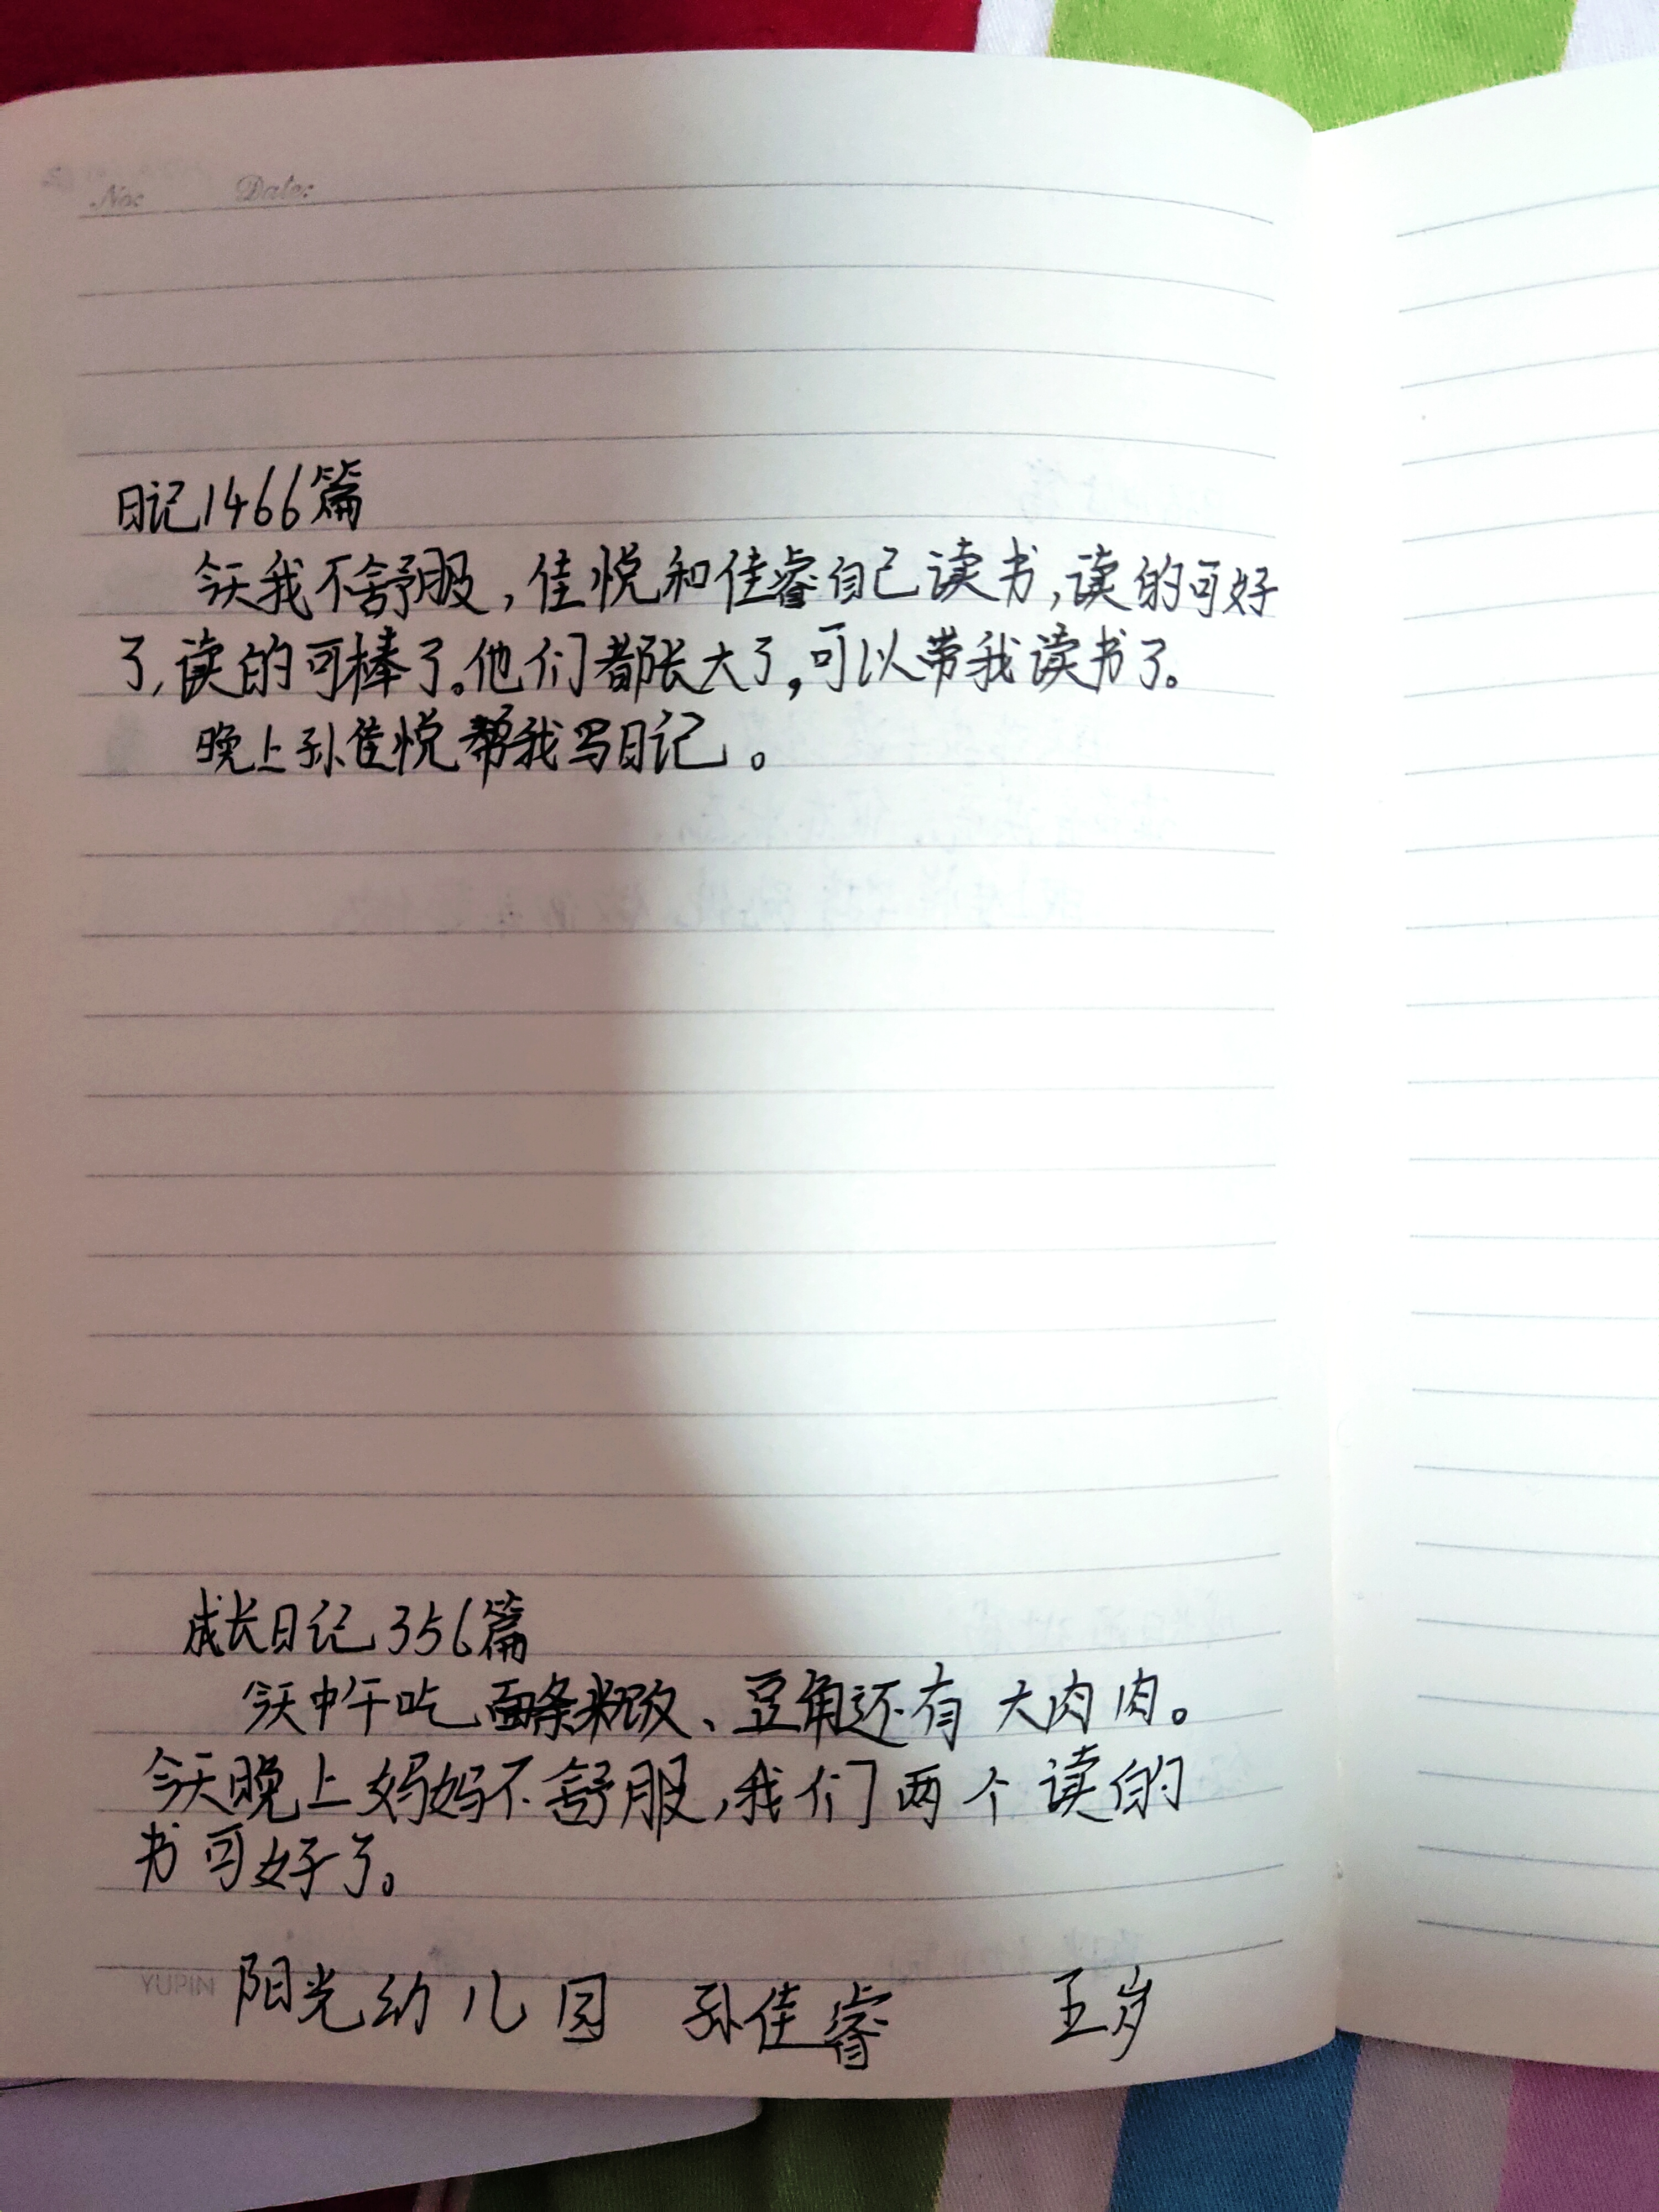 No: Date:
日记1466篇
今天我不舒服,佳悦和佳睿自己读书,读的可好
了,读的可棒了。他们都长大了,可以带我读书了。
晚上孙佳悦帮我写日记。
成长日记356篇
今天中午吃面条米饭、豆角还有大肉肉。
今天晚上妈妈不舒服,我们两个读的
书可好了。
YUPIN
阳光幼儿园 孙佳睿 五岁